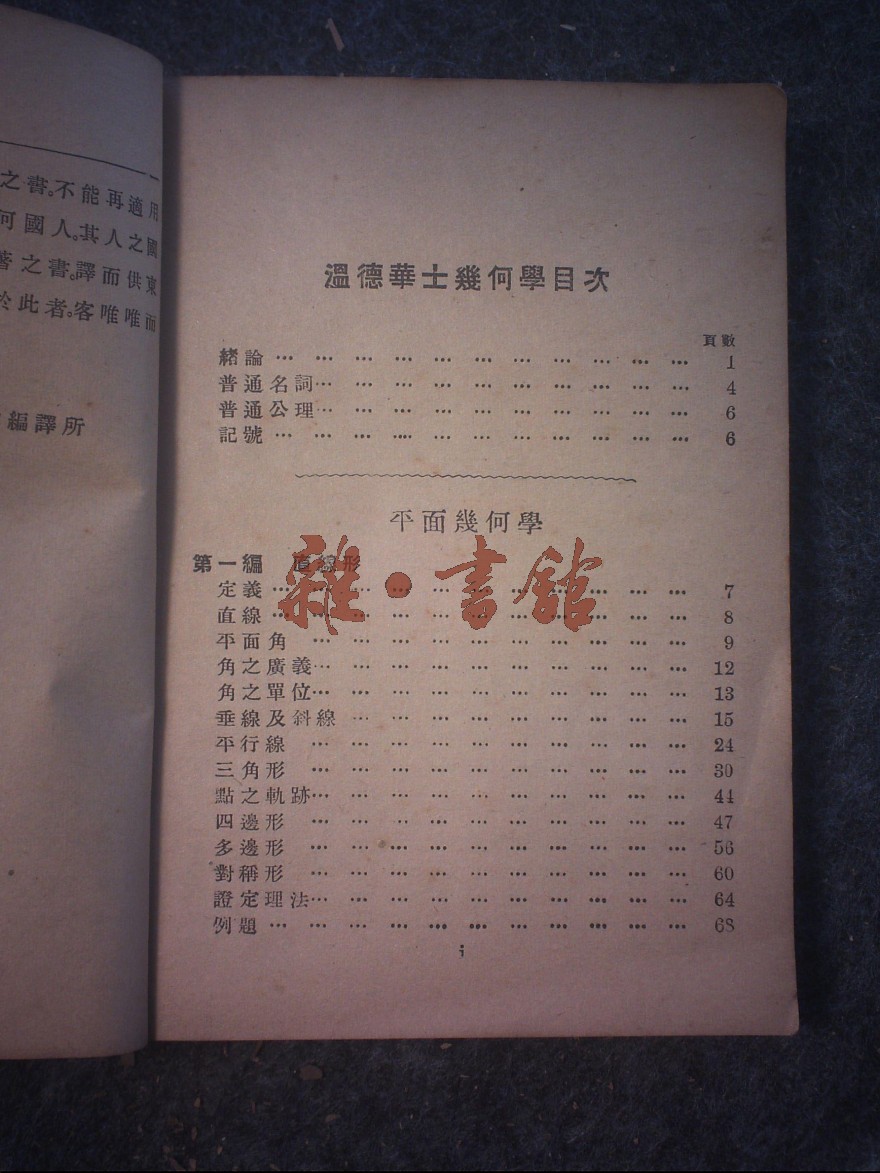 之書。不能再適用
何國人。其人之國
著之書。譯而供東
於此者。客唯唯而
編譯所
溫德華士幾何學目次
頁數
緒論 … … … … … … … … … … … 1
普通名詞… … … … … … … … … … 4
普通公理… … … … … … … … … … 6
記號 … … … …. … … … … … … … 6
平面幾何學
第一編 直線形
定義 … … … … … … … … … … … 7
直線 … … … … … … … … … … … 8
平面角 … … … … … … … … … … 9
角之廣義… … … … … … … … … … 12
角之單位… … … … … … … … … … 13
垂線及斜線 … … … … … … … … … 15
平行線 … … … … … … … … … … 24
三角形 … … … … … … … … … … 30
點之軌跡… … … … … … … … … … 44
四邊形 … … … … … … … … … … 47
多邊形 … … … … … … … … … … 56
對稱形 … … … … … … … … … … 60
證定理法… … … … … … … … … … 64
例題 … … … … … … … … … … … 68
i
雜·書館